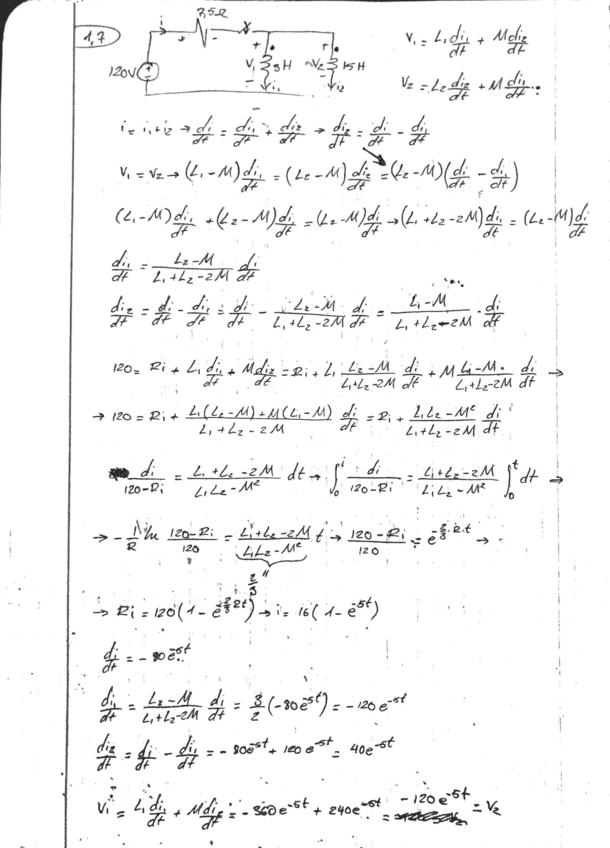 1,7
i
7,5Ω
120V
+ -
+ V₁ - 3H i₁
+ V₂ - 15H i₂
V₁ = L₁ di₁/dt + M di₂/dt
V₂ = L₂ di₂/dt + M di₁/dt
i = i₁+i₂ → di/dt = di₁/dt + di₂/dt → di₂/dt = di/dt - di₁/dt
V₁ = V₂ → (L₁-M) di₁/dt = (L₂-M) di₂/dt = (L₂-M)(di/dt - di₁/dt)
(L₁-M) di₁/dt + (L₂-M) di₁/dt = (L₂-M) di/dt → (L₁+L₂-2M) di₁/dt = (L₂-M) di/dt
di₁/dt = (L₂-M)/(L₁+L₂-2M) di/dt
di₂/dt = di/dt - di₁/dt = di/dt - (L₂-M)/(L₁+L₂-2M) di/dt = (L₁-M)/(L₁+L₂-2M) · di/dt
120 = Ri + L₁ di₁/dt + M di₂/dt = Ri + L₁ (L₂-M)/(L₁+L₂-2M) di/dt + M (L₁-M)/(L₁+L₂-2M) di/dt →
→ 120 = Ri + (L₁(L₂-M)+M(L₁-M))/(L₁+L₂-2M) di/dt = Ri + (L₁L₂-M²)/(L₁+L₂-2M) di/dt
di/(120-Ri) = (L₁+L₂-2M)/(L₁L₂-M²) dt → ∫₀ⁱ di/(120-Ri) = (L₁+L₂-2M)/(L₁L₂-M²) ∫₀ᵗ dt →
→ -1/R ln (120-Ri)/120 = (L₁+L₂-2M)/(L₁L₂-M²) t → (120-Ri)/120 = e^(-2/3·R·t) →
2/3
→ Ri = 120(1 - e^(-2/3 Rt)) → i = 16(1 - e^(-5t))
di/dt = -80e^(-5t)
di₁/dt = (L₂-M)/(L₁+L₂-2M) di/dt = 3/2 (-80e^(-5t)) = -120e^(-5t)
di₂/dt = di/dt - di₁/dt = -80e^(-5t) + 120e^(-5t) = 40e^(-5t)
V₁ = L₁ di₁/dt + M di₂/dt = -360e^(-5t) + 240e^(-5t) = -120e^(-5t) = V₂